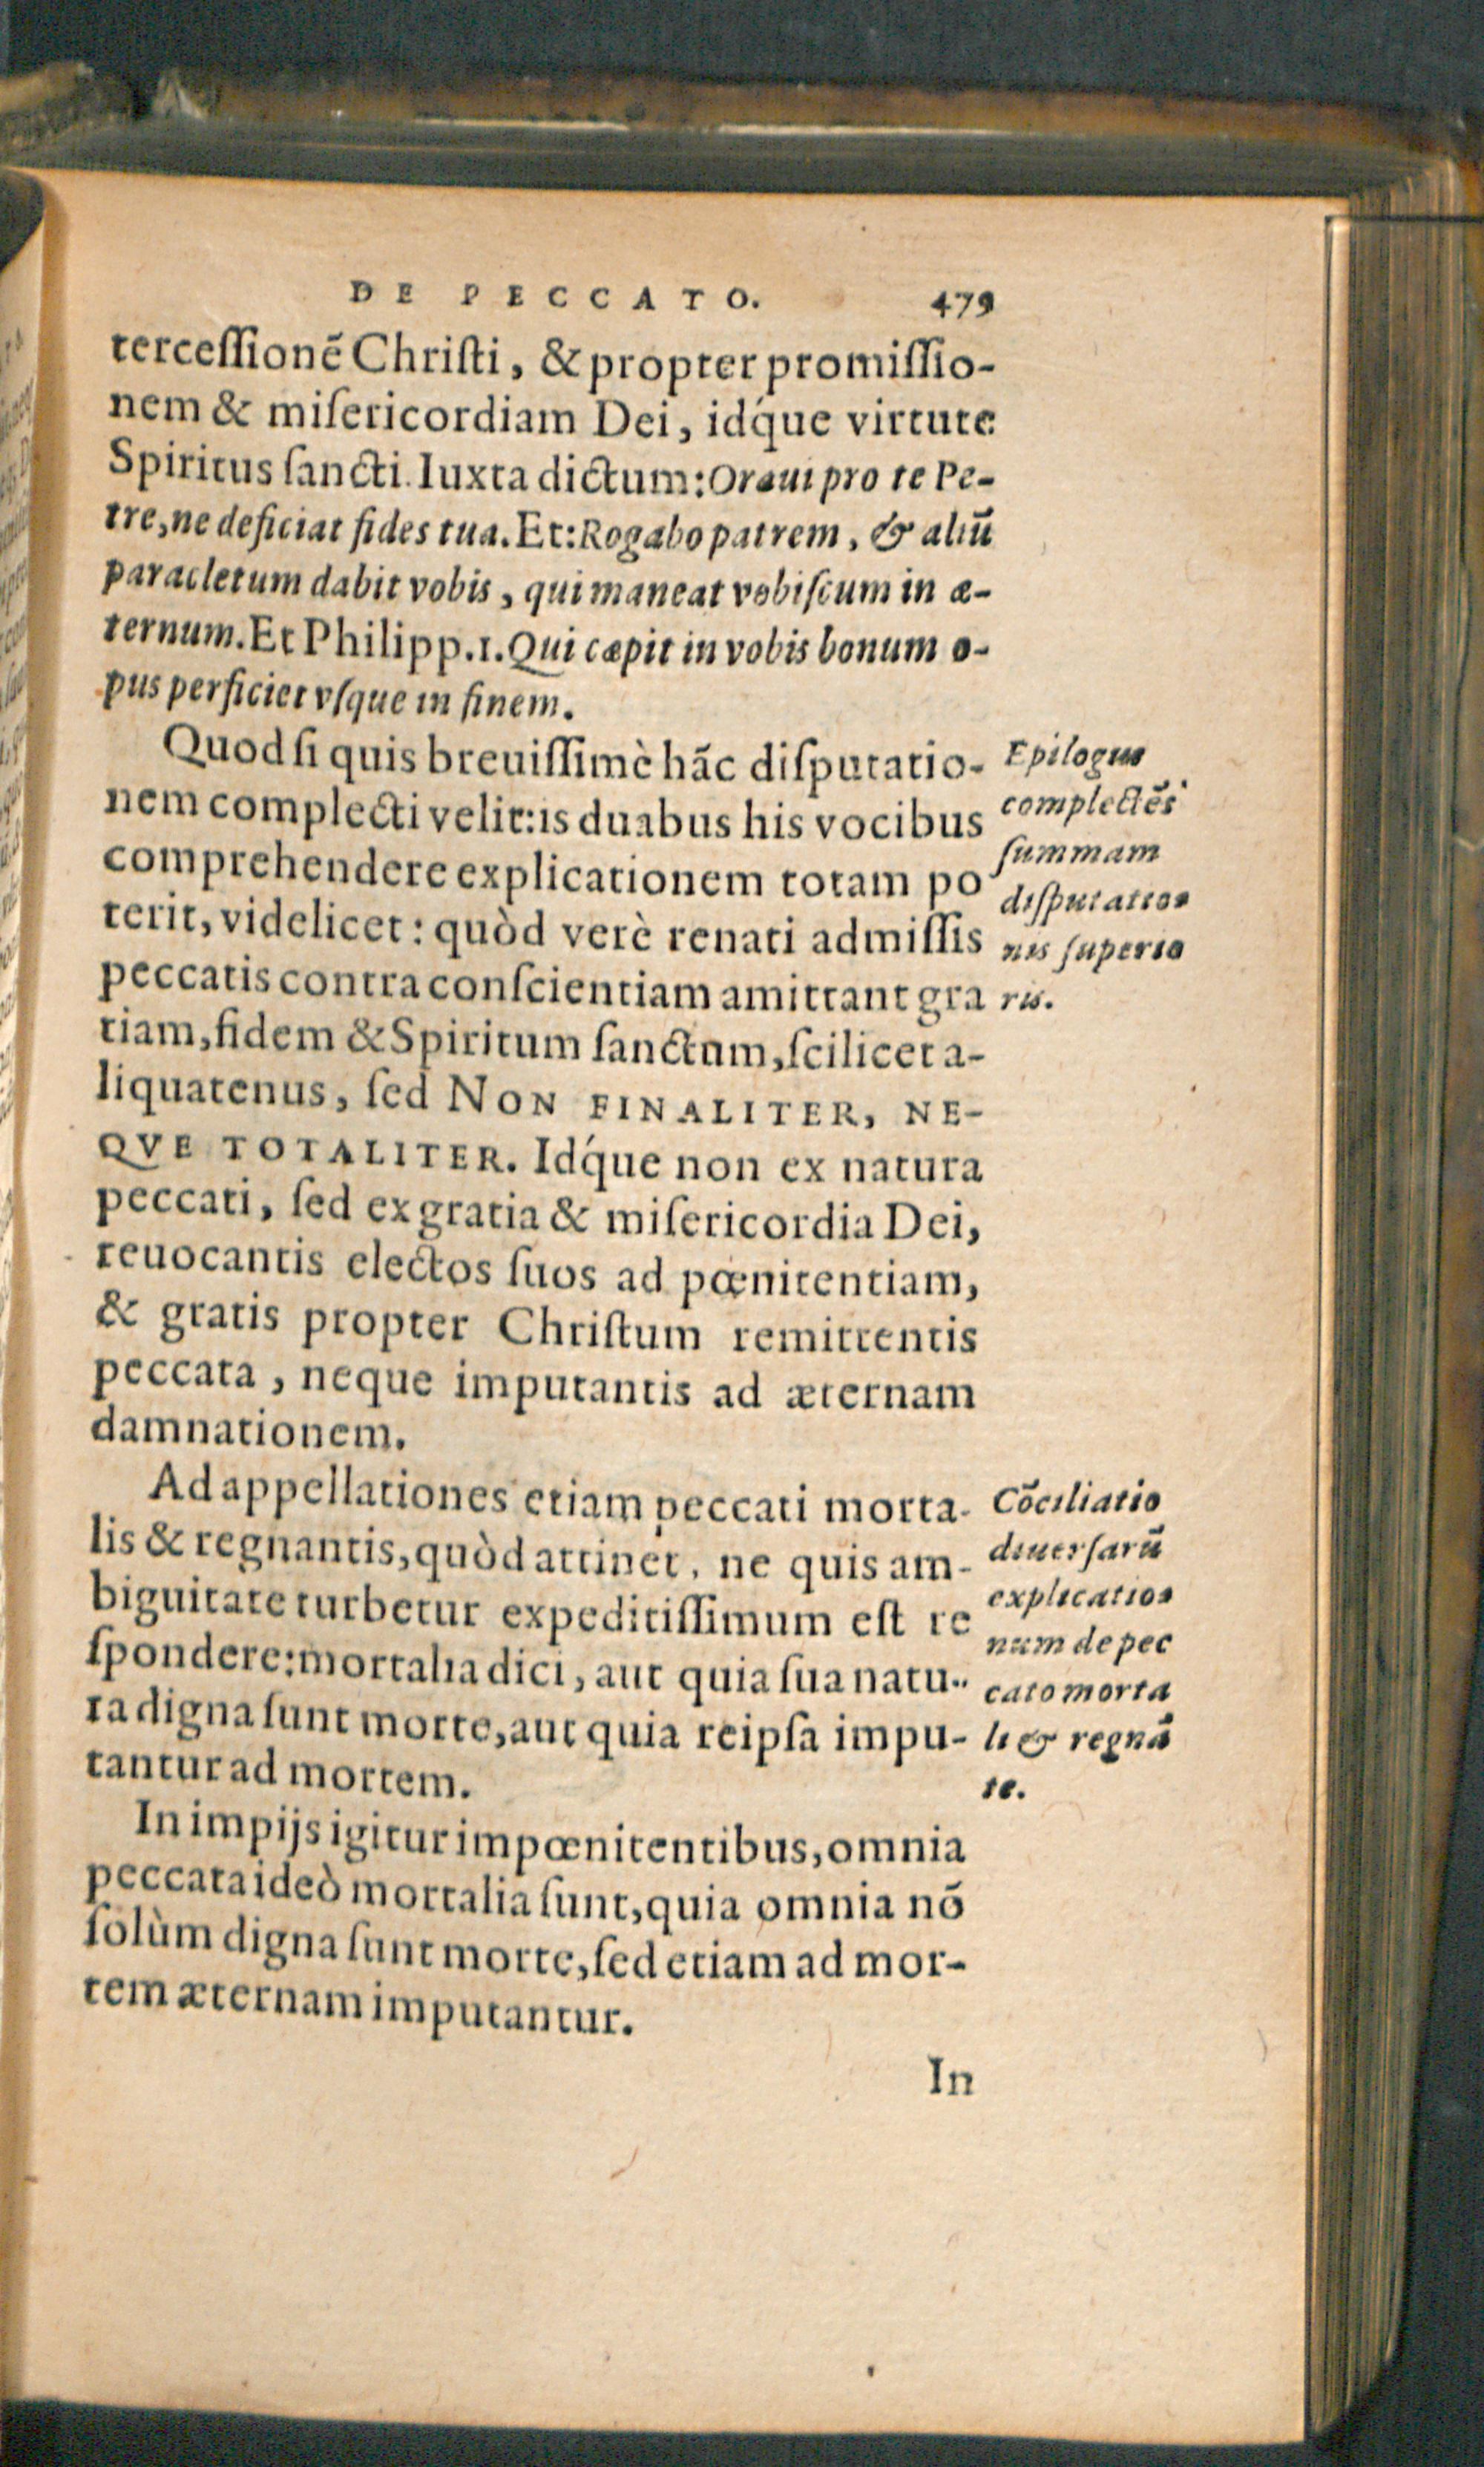 DE PECCATO. 479
terceſſionē Chriſti, & propter promiſſio-
nem & miſericordiam Dei, idq́ue virtute
Spiritus ſancti. Iuxta dictum: Oraui pro te Pe-
tre, ne deficiat fides tua. Et: Rogabo patrem, & aliū
paracletum dabit vobis, qui maneat vobiſcum in æ-
ternum. Et Philipp. 1. Qui cœpit in vobis bonum o-
pus perficiet vſque in finem.
Quod ſi quis breuiſſimè hāc diſputatio-
nem complecti velit: is duabus his vocibus
comprehendere explicationem totam po
terit, videlicet: quòd verè renati admiſſis
peccatis contra conſcientiam amittant gra
tiam, fidem & Spiritum ſanctum, ſcilicet a-
liquatenus, ſed NON FINALITER, NE-
QVE TOTALITER. Idq́ue non ex natura
peccati, ſed ex gratia & miſericordia Dei,
reuocantis electos ſuos ad pœnitentiam,
& gratis propter Chriſtum remittentis
peccata, neque imputantis ad æternam
damnationem.
Epilogus
complectēs
ſummam
diſputatio-
nis ſuperio
ris.
Ad appellationes etiam peccati morta-
lis & regnantis, quòd attinet, ne quis am-
biguitate turbetur expeditiſſimum eſt re
ſpondere: mortalia dici, aut quia ſua natu-
ra digna ſunt morte, aut quia reipſa impu-
tantur ad mortem.
Cōciliatio
diuerſarū
explicatio-
num de pec
cato morta
li & regnā
te.
In impijs igitur impœnitentibus, omnia
peccata ideò mortalia ſunt, quia omnia nō
ſolùm digna ſunt morte, ſed etiam ad mor-
tem æternam imputantur.
In